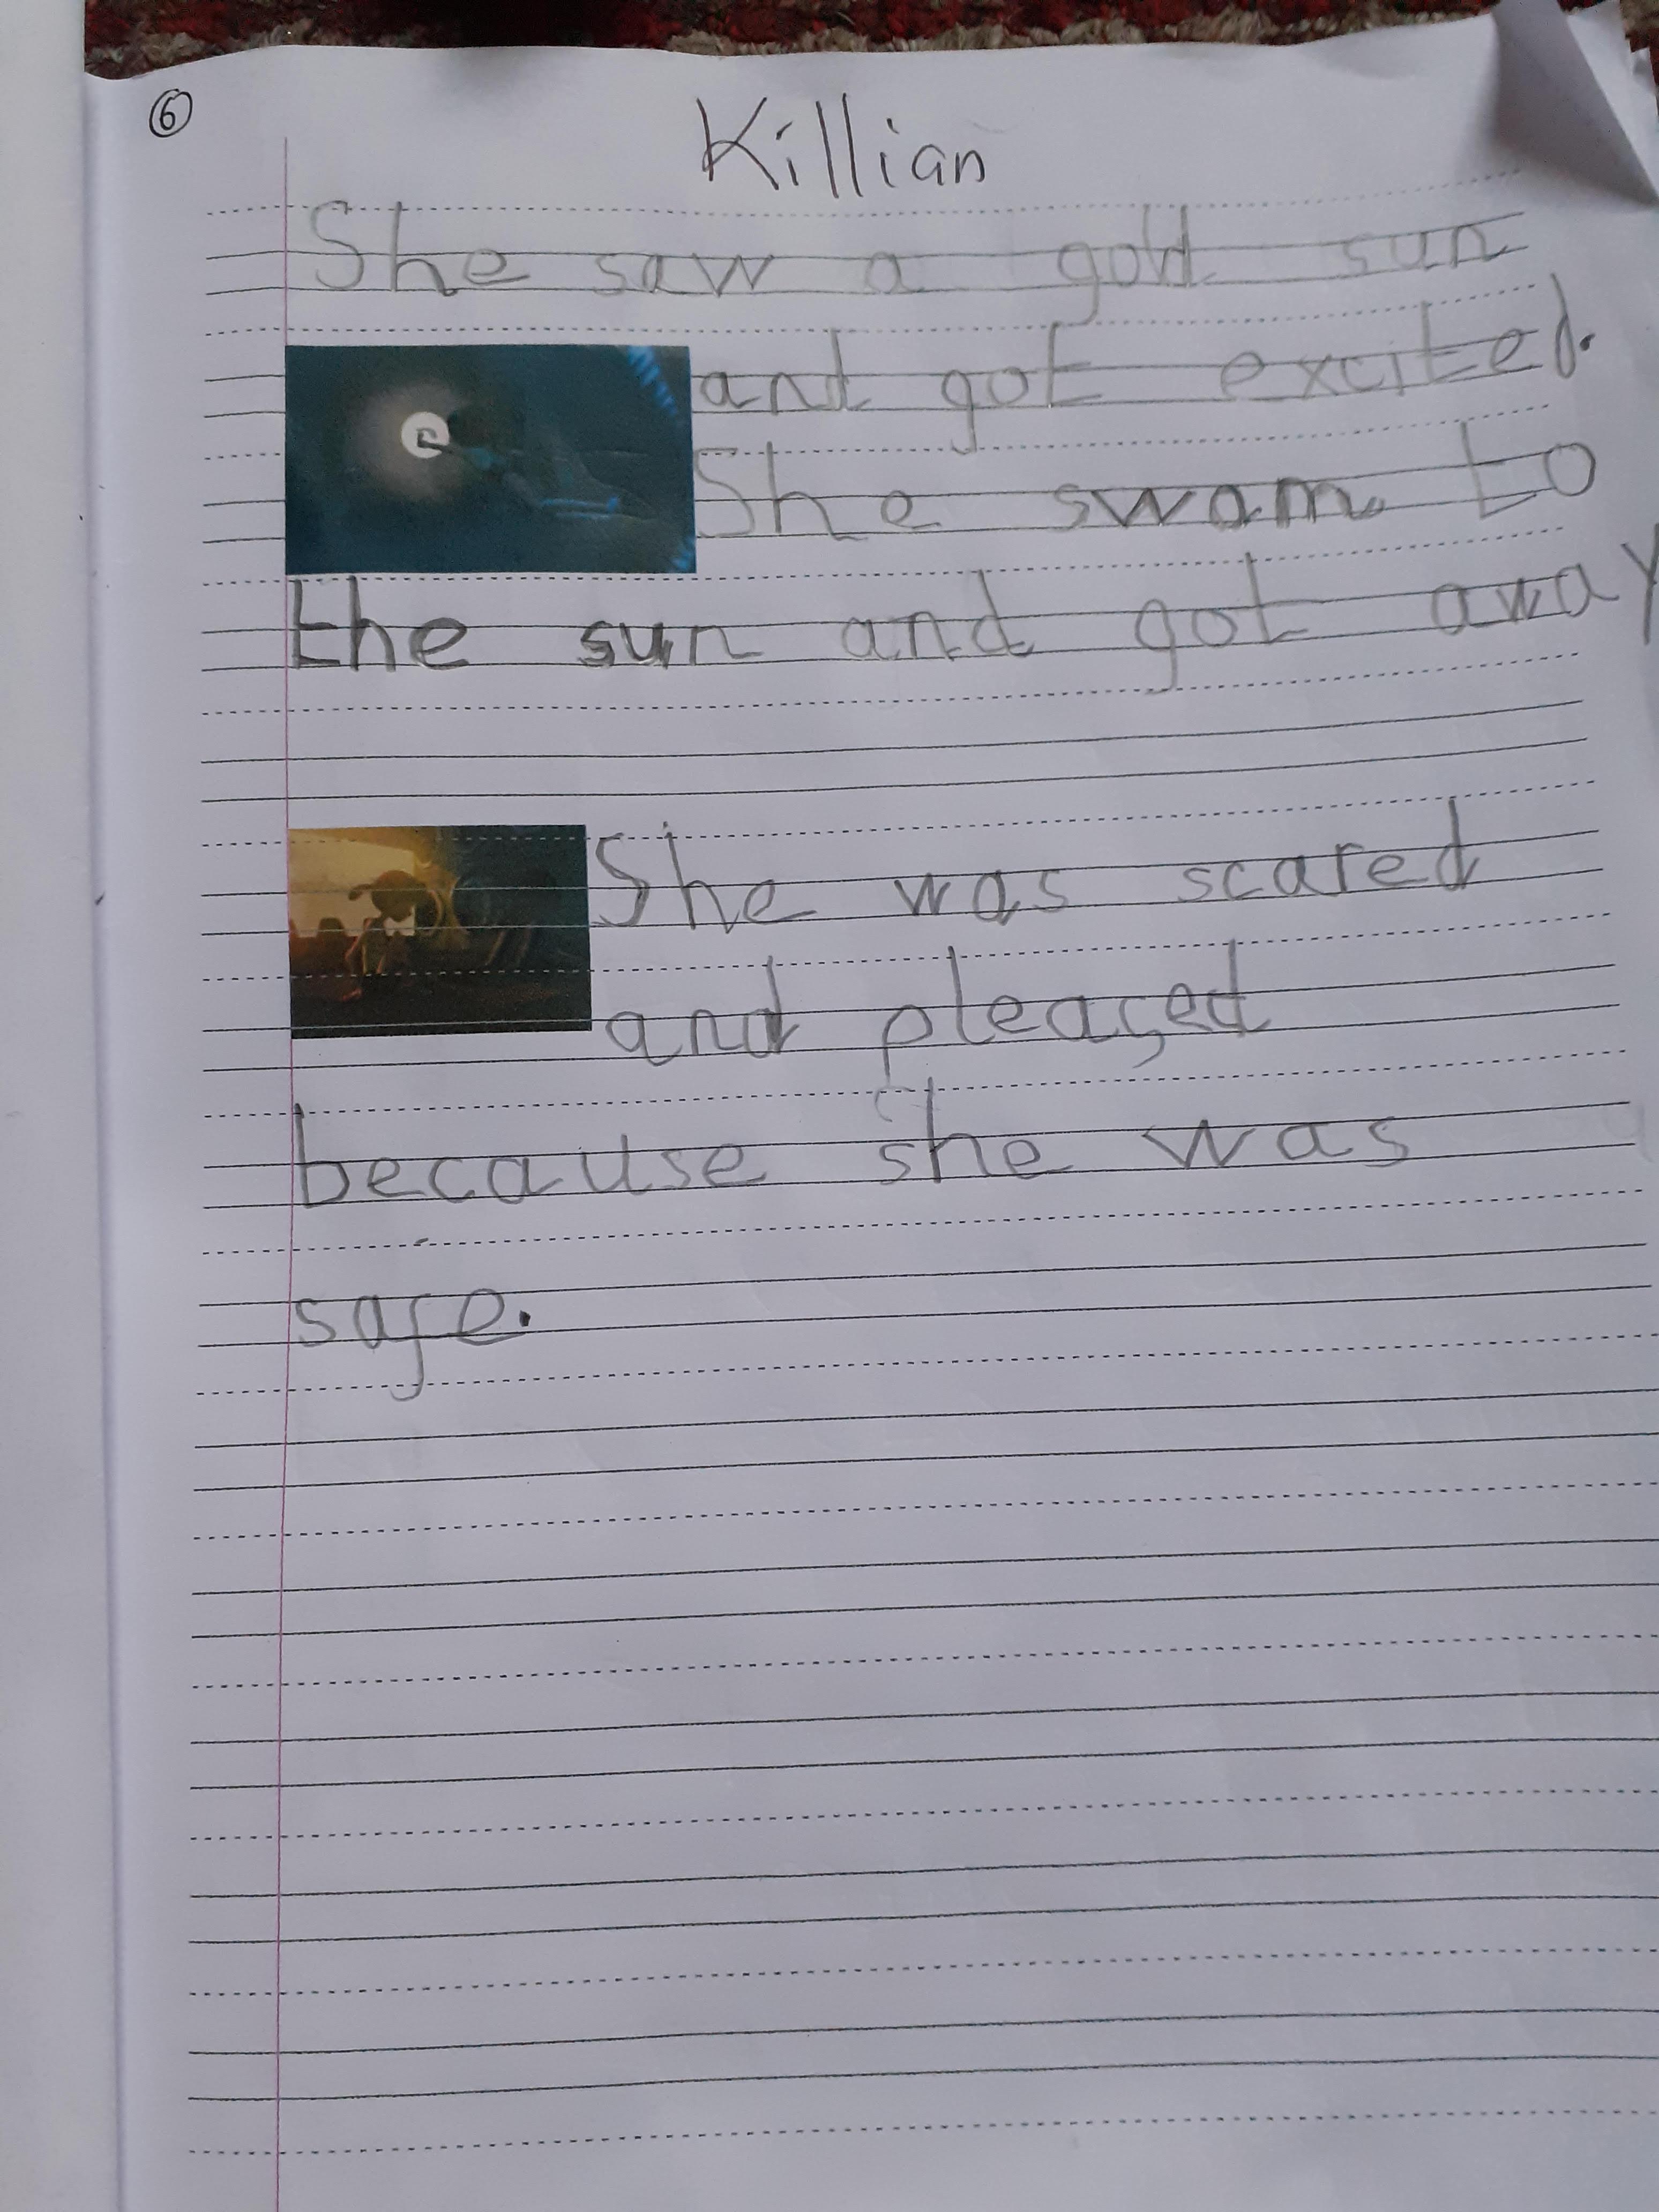 6
Killian
She saw a gold sun
and got excited.
She swam to
the sun and got away
She was scared
and pleased
because she was
safe.